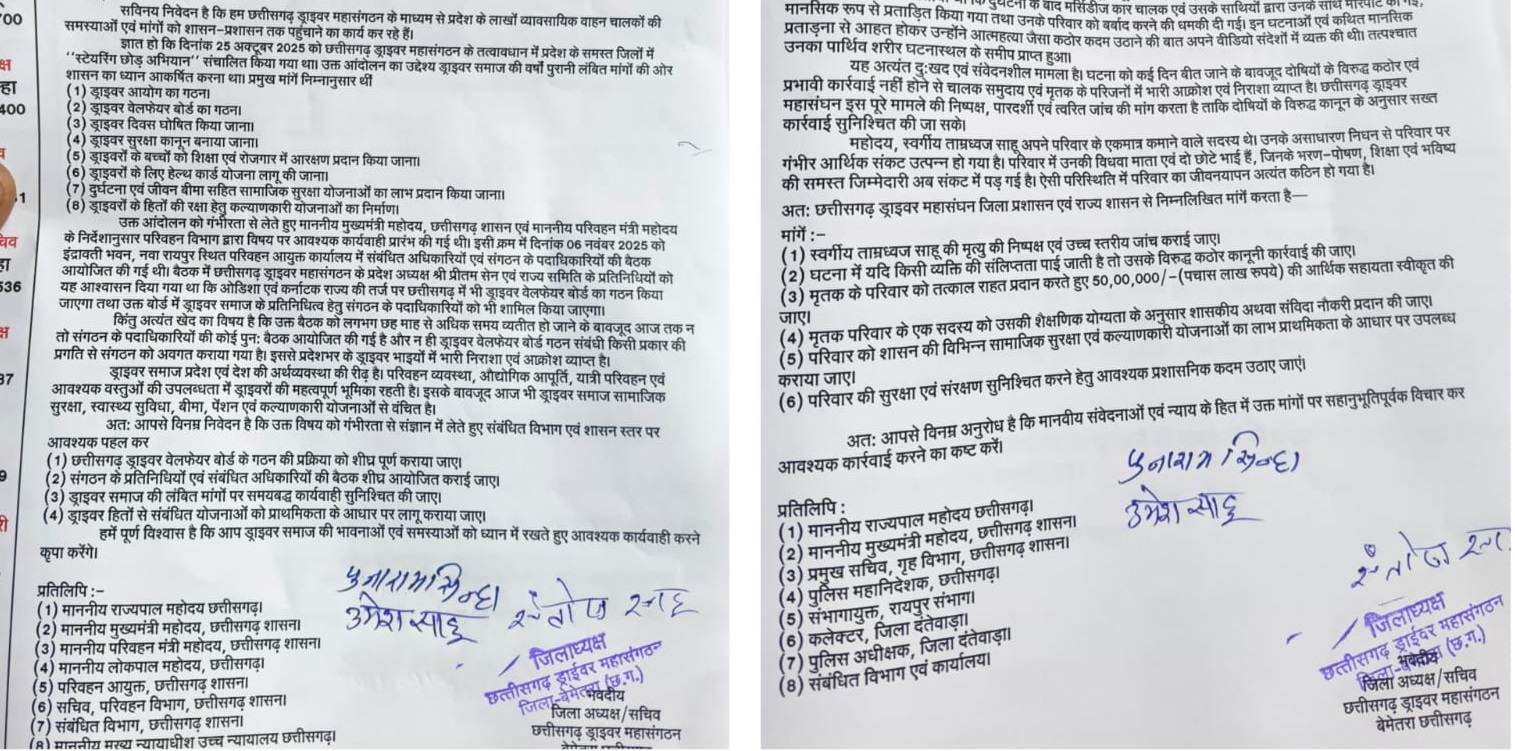 00
क्ष
हा
400
व
1
चिव
हा
536
क्ष
37
9
री
सविनय निवेदन है कि हम छत्तीसगढ़ ड्राइवर महासंगठन के माध्यम से प्रदेश के लाखों व्यावसायिक वाहन चालकों की
समस्याओं एवं मांगों को शासन-प्रशासन तक पहुंचाने का कार्य कर रहे हैं।
ज्ञात हो कि दिनांक 25 अक्टूबर 2025 को छत्तीसगढ़ ड्राइवर महासंगठन के तत्वावधान में प्रदेश के समस्त जिलों में
"स्टेयरिंग छोड़ अभियान" संचालित किया गया था। उक्त आंदोलन का उद्देश्य ड्राइवर समाज की वर्षों पुरानी लंबित मांगों की ओर
शासन का ध्यान आकर्षित करना था। प्रमुख मांगें निम्नानुसार थीं
(1) ड्राइवर आयोग का गठन।
(2) ड्राइवर वेलफेयर बोर्ड का गठन।
(3) ड्राइवर दिवस घोषित किया जाना।
(4) ड्राइवर सुरक्षा कानून बनाया जाना।
(5) ड्राइवरों के बच्चों को शिक्षा एवं रोजगार में आरक्षण प्रदान किया जाना।
(6) ड्राइवरों के लिए हेल्थ कार्ड योजना लागू की जाना।
(7) दुर्घटना एवं जीवन बीमा सहित सामाजिक सुरक्षा योजनाओं का लाभ प्रदान किया जाना।
(8) ड्राइवरों के हितों की रक्षा हेतु कल्याणकारी योजनाओं का निर्माण।
उक्त आंदोलन को गंभीरता से लेते हुए माननीय मुख्यमंत्री महोदय, छत्तीसगढ़ शासन एवं माननीय परिवहन मंत्री महोदय
के निर्देशानुसार परिवहन विभाग द्वारा विषय पर आवश्यक कार्यवाही प्रारंभ की गई थी। इसी क्रम में दिनांक 06 नवंबर 2025 को
इंद्रावती भवन, नवा रायपुर स्थित परिवहन आयुक्त कार्यालय में संबंधित अधिकारियों एवं संगठन के पदाधिकारियों की बैठक
आयोजित की गई थी। बैठक में छत्तीसगढ़ ड्राइवर महासंगठन के प्रदेश अध्यक्ष श्री प्रीतम सेन एवं राज्य समिति के प्रतिनिधियों को
यह आश्वासन दिया गया था कि ओडिशा एवं कर्नाटक राज्य की तर्ज पर छत्तीसगढ़ में भी ड्राइवर वेलफेयर बोर्ड का गठन किया
जाएगा तथा उक्त बोर्ड में ड्राइवर समाज के प्रतिनिधित्व हेतु संगठन के पदाधिकारियों को भी शामिल किया जाएगा।
किंतु अत्यंत खेद का विषय है कि उक्त बैठक को लगभग छह माह से अधिक समय व्यतीत हो जाने के बावजूद आज तक न
तो संगठन के पदाधिकारियों की कोई पुन: बैठक आयोजित की गई है और न ही ड्राइवर वेलफेयर बोर्ड गठन संबंधी किसी प्रकार की
प्रगति से संगठन को अवगत कराया गया है। इससे प्रदेशभर के ड्राइवर भाइयों में भारी निराशा एवं आक्रोश व्याप्त है।
ड्राइवर समाज प्रदेश एवं देश की अर्थव्यवस्था की रीढ़ है। परिवहन व्यवस्था, औद्योगिक आपूर्ति, यात्री परिवहन एवं
आवश्यक वस्तुओं की उपलब्धता में ड्राइवरों की महत्वपूर्ण भूमिका रहती है। इसके बावजूद आज भी ड्राइवर समाज सामाजिक
सुरक्षा, स्वास्थ्य सुविधा, बीमा, पेंशन एवं कल्याणकारी योजनाओं से वंचित है।
अत: आपसे विनम्र निवेदन है कि उक्त विषय को गंभीरता से संज्ञान में लेते हुए संबंधित विभाग एवं शासन स्तर पर
आवश्यक पहल कर
(1) छत्तीसगढ़ ड्राइवर वेलफेयर बोर्ड के गठन की प्रक्रिया को शीघ्र पूर्ण कराया जाए।
(2) संगठन के प्रतिनिधियों एवं संबंधित अधिकारियों की बैठक शीघ्र आयोजित कराई जाए।
(3) ड्राइवर समाज की लंबित मांगों पर समयबद्ध कार्यवाही सुनिश्चित की जाए।
(4) ड्राइवर हितों से संबंधित योजनाओं को प्राथमिकता के आधार पर लागू कराया जाए।
हमें पूर्ण विश्वास है कि आप ड्राइवर समाज की भावनाओं एवं समस्याओं को ध्यान में रखते हुए आवश्यक कार्यवाही करने
कृपा करेंगे।
पुनाराम सिन्हा
उमेश साहू
प्रतिलिपि :-
(1) माननीय राज्यपाल महोदय छत्तीसगढ़।
(2) माननीय मुख्यमंत्री महोदय, छत्तीसगढ़ शासन।
(3) माननीय परिवहन मंत्री महोदय, छत्तीसगढ़ शासन।
(4) माननीय लोकपाल महोदय, छत्तीसगढ़।
(5) परिवहन आयुक्त, छत्तीसगढ़ शासन।
(6) सचिव, परिवहन विभाग, छत्तीसगढ़ शासन।
(7) संबंधित विभाग, छत्तीसगढ़ शासन।
(8) माननीय मुख्य न्यायाधीश उच्च न्यायालय छत्तीसगढ़।
जिलाध्यक्ष
छत्तीसगढ़ ड्राईवर महासंगठन
जिला-बेमेतरा (छ.ग.)
भवदीय
जिला अध्यक्ष/सचिव
छत्तीसगढ़ ड्राइवर महासंगठन
बेमेतरा छत्तीसगढ़
दुर्घटना के बाद मर्सिडीज कार चालक एवं उसके साथियों द्वारा उनके साथ मारपीट की गई,
मानसिक रूप से प्रताड़ित किया गया तथा उनके परिवार को बर्बाद करने की धमकी दी गई। इन घटनाओं एवं कथित मानसिक
प्रताड़ना से आहत होकर उन्होंने आत्महत्या जैसा कठोर कदम उठाने की बात अपने वीडियो संदेशों में व्यक्त की थी। तत्पश्चात
उनका पार्थिव शरीर घटनास्थल के समीप प्राप्त हुआ।
यह अत्यंत दु:खद एवं संवेदनशील मामला है। घटना को कई दिन बीत जाने के बावजूद दोषियों के विरुद्ध कठोर एवं
प्रभावी कार्रवाई नहीं होने से चालक समुदाय एवं मृतक के परिजनों में भारी आक्रोश एवं निराशा व्याप्त है। छत्तीसगढ़ ड्राइवर
महासंघन इस पूरे मामले की निष्पक्ष, पारदर्शी एवं त्वरित जांच की मांग करता है ताकि दोषियों के विरुद्ध कानून के अनुसार सख्त
कार्रवाई सुनिश्चित की जा सके।
महोदय, स्वर्गीय ताम्रध्वज साहू अपने परिवार के एकमात्र कमाने वाले सदस्य थे। उनके असाधारण निधन से परिवार पर
गंभीर आर्थिक संकट उत्पन्न हो गया है। परिवार में उनकी विधवा माता एवं दो छोटे भाई हैं, जिनके भरण-पोषण, शिक्षा एवं भविष्य
की समस्त जिम्मेदारी अब संकट में पड़ गई है। ऐसी परिस्थिति में परिवार का जीवनयापन अत्यंत कठिन हो गया है।
अत: छत्तीसगढ़ ड्राइवर महासंघन जिला प्रशासन एवं राज्य शासन से निम्नलिखित मांगें करता है—
मांगें :-
(1) स्वर्गीय ताम्रध्वज साहू की मृत्यु की निष्पक्ष एवं उच्च स्तरीय जांच कराई जाए।
(2) घटना में यदि किसी व्यक्ति की संलिप्तता पाई जाती है तो उसके विरुद्ध कठोर कानूनी कार्रवाई की जाए।
(3) मृतक के परिवार को तत्काल राहत प्रदान करते हुए 50,00,000/-(पचास लाख रुपये) की आर्थिक सहायता स्वीकृत की
जाए।
(4) मृतक परिवार के एक सदस्य को उसकी शैक्षणिक योग्यता के अनुसार शासकीय अथवा संविदा नौकरी प्रदान की जाए।
(5) परिवार को शासन की विभिन्न सामाजिक सुरक्षा एवं कल्याणकारी योजनाओं का लाभ प्राथमिकता के आधार पर उपलब्ध
कराया जाए।
(6) परिवार की सुरक्षा एवं संरक्षण सुनिश्चित करने हेतु आवश्यक प्रशासनिक कदम उठाए जाएं।
अत: आपसे विनम्र अनुरोध है कि मानवीय संवेदनाओं एवं न्याय के हित में उक्त मांगों पर सहानुभूतिपूर्वक विचार कर
आवश्यक कार्रवाई करने का कष्ट करें।
पुनाराम सिन्हा
उमेश साहू
प्रतिलिपि :
(1) माननीय राज्यपाल महोदय छत्तीसगढ़।
(2) माननीय मुख्यमंत्री महोदय, छत्तीसगढ़ शासन।
(3) प्रमुख सचिव, गृह विभाग, छत्तीसगढ़ शासन।
(4) पुलिस महानिदेशक, छत्तीसगढ़।
(5) संभागायुक्त, रायपुर संभाग।
(6) कलेक्टर, जिला दंतेवाड़ा।
(7) पुलिस अधीक्षक, जिला दंतेवाड़ा।
(8) संबंधित विभाग एवं कार्यालय।
जिलाध्यक्ष
छत्तीसगढ़ ड्राईवर महासंगठन
जिला-बेमेतरा (छ.ग.)
भवदीय
जिला अध्यक्ष/सचिव
छत्तीसगढ़ ड्राइवर महासंगठन
बेमेतरा छत्तीसगढ़